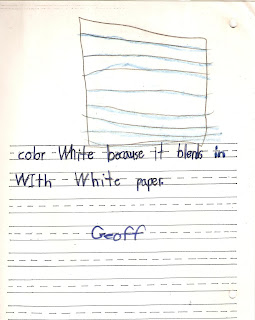 color White because it blends in
WITH White paper.
Geoff